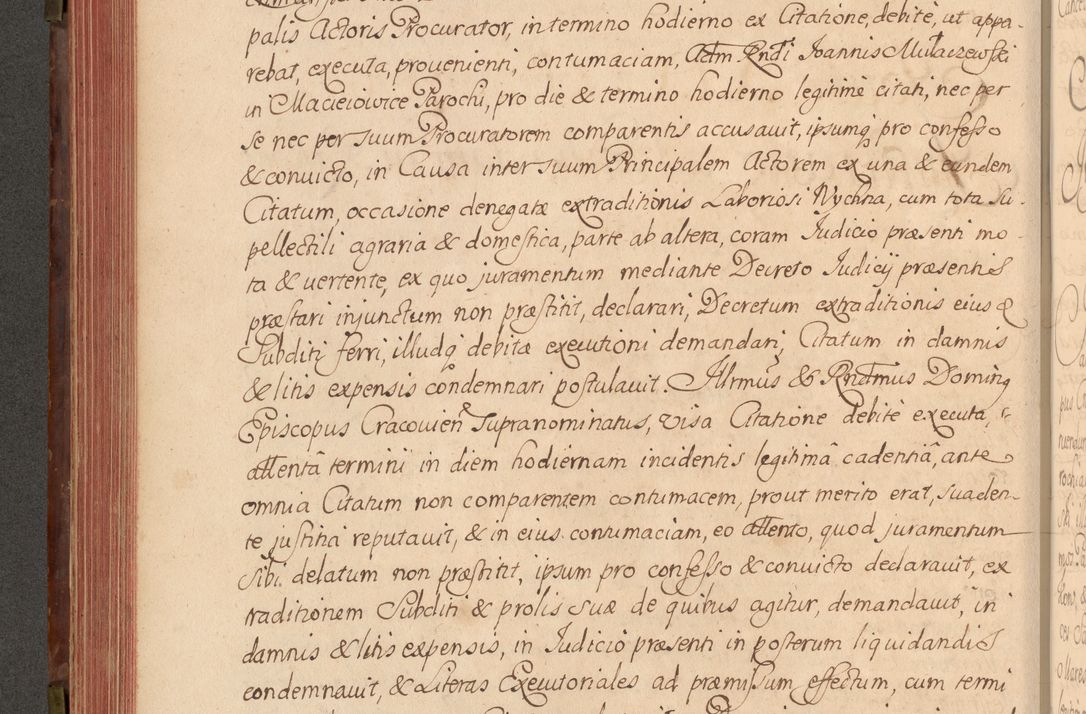 palis Actoris Procurator, in termino hodierno ex Citatione, debitè, ut appa-
rebat, executa, prouenienti, contumaciam, Adm Rndi Joannis Mułaczewski
in Macieiowice Parochi, pro die & termino hodierno legitimè citati, nec per
se nec per suum Procuratorem comparentis accusauit, ipsumq pro confesso
& conuicto, in Causa inter suum Principalem Actorem ex una & eundem
Citatum, occasione denegatæ extraditionis Laboriosi Nychna, cum tota su-
pellectili agraria & domestica, parte ab altera, coram Judicio præsenti mo-
ta & uertente, ex quo juramentum mediante Decreto Judicij præsentis
præstari injunctum non præstitit, declarari, Decretum extraditionis eius &
Subditi ferri, illudq debitæ executioni demandari, Citatum in damnis
& litis expensis condemnari postulauit. Illrmus & Rndmus Dominq
Episcopus Cracouien Supranominatus, visa Citatione debitè executa,
attentâ termini in diem hodiernam incidentis legitimâ cadentiâ, ante
omnia Citatum non comparentem contumacem, prout merito erat, suaden-
te justitiâ reputauit, & in eius contumaciam, eo attento, quod juramentum
sibi delatum non præstitit, ipsum pro confesso & conuicto declarauit, ex
traditionem Subditi & prolis suæ de quibus agitur, demandauit, in
damnis & litis expensis, in Judicio præsenti in posterum liquidandis
condemnauit, & Literas Executoriales ad præmissum effectum, cum termi